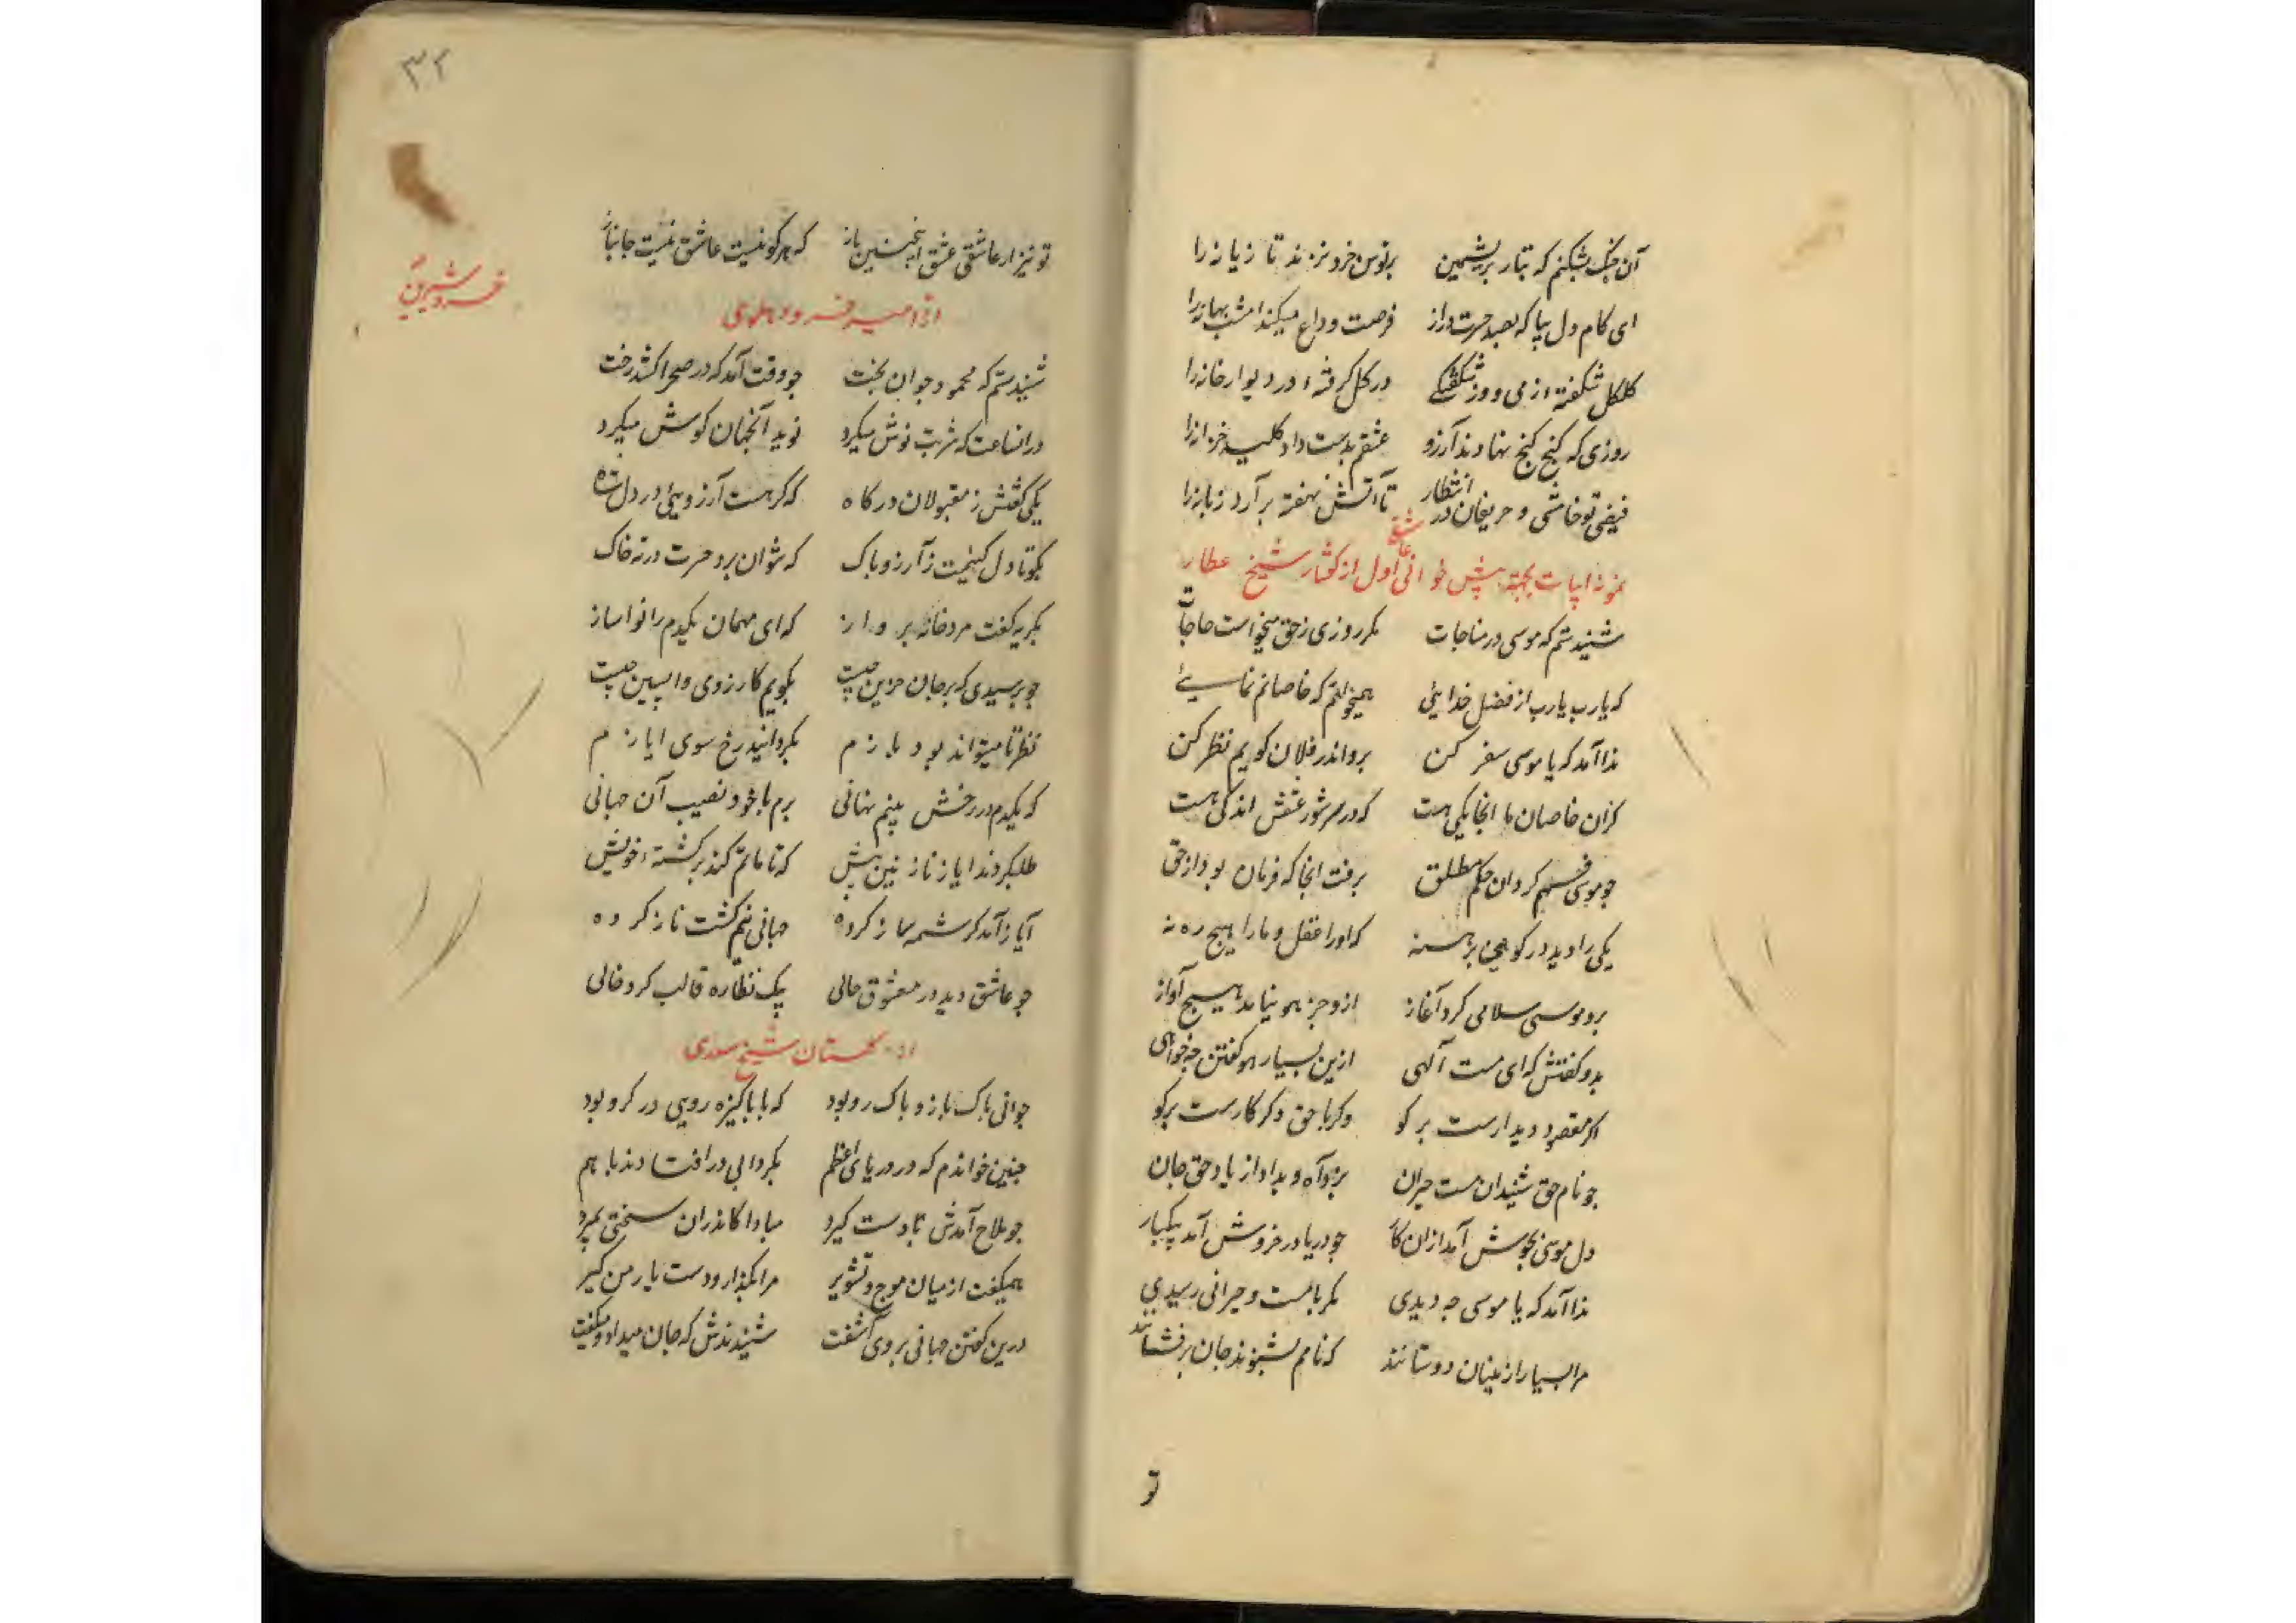 آن جنگ بشکنم که بتار بریشمین برنوس خرد نزند تازیانه را
ای کام دل بیا که بصد حسرت دراز فرصت وداع میکند امشب بهانه را
کلکل شکفته از می و وز شکفتگی در کل کرفته در و دیوار خانه را
روزی که کنج کنج نهادند آرزو عشقم بدست داد کلید خزانه را
فیضی تو خامشی و حریفان در انتظار تا آتش نهفته برآرد زبانه را
نمونه ابیات بجهة پیش خوانی عاشقی اول از کفتار شیخ عطار
شنیدستم که موسی در مناجات مکر روزی ز حق میخواست حاجات
که یارب یارب از فضل خدایی همیخواهم که خاصانم نمایی
ندا آمد که یا موسی سفر کن برو اندر فلان کویم نظر کن
کزان خاصان ما انجا یکی هست که در سر شور عشقش اندکی هست
جو موسی فهم کرد آن حکم مطلق برفت انجا که فرمان بود از حق
یکی را دید در کوهی برهنه که او را عقل و ما را هیچ ره نه
برو موسی سلامی کرد آغاز ازو جز هو نیامد هیچ آواز
بدو کفتش که ای مست آلهی ازین بسیار هو کفتن چه خواهی
اکر مقصود دیدارست برکو وکر با حق دکر کارست برکو
جو نام حق شنید آن مست حیران بزد آه و بداد از یاد حق جان
دل موسی بجوش آمد ازان کار جو دریا در خروش آمد بیکبار
ندا آمد که یا موسی جه دیدی مکر با مست و حیرانی رسیدی
مرا بسیار ازینان دوستانند که نامم بشنوند جان برفشانند
تو
۳۲
تو نیز ار عاشقی عشق اینچنین باز که هر کو نیست عاشق نیست جانباز
خسرو شیرین
از امیر خسرو دهلوی
شنیدستم که محمود جوان بخت جو وقت آمد که در صحرا کشد رخت
در انساعت که شربت نوش میکرد نوید آنجهان کوش میکرد
یکی کفتش ز مقبولان درکاه که کر هست آرزویی در دل شاه
بکو تا دل کنیمت ز آرزو پاک که نتوان برد حسرت در ته خاک
بکریه کفت مرد خانه برداز که ای مهمان یکدم را نوا ساز
جو برسیدی که بر جان حزین چیست بکویم کارزوی واپسین چیست
نظر تا میتواند بود بازم بکردانید رخ سوی ایازم
که یکدم در رخش بینم نهانی برم با خود نصیب آن جهانی
طلبکردند ایاز نازنین پیش که تا ماتم کند بر کشته خویش
آیاز آمد کرشمه ساز کرده جهانی نیم کشت ناز کرده
جو عاشق دید در معشوق حالی بیک نظاره قالب کرد خالی
از کلستان شیخ سعدی
جوانی باک باز و باک رو بود که با باکیزه رویی در کرو بود
جنین خواندم که در دریای اعظم بکردابی در افتادند با هم
جو ملاح آمدش تا دست کیرد مبادا کاندران سختی بمیرد
همیکفت از میان موج و تشویر مرا بکذار و دست یار من کیر
درین کفتن جهانی بر وی آشفت شنیدندش که جان میداد و میکفت